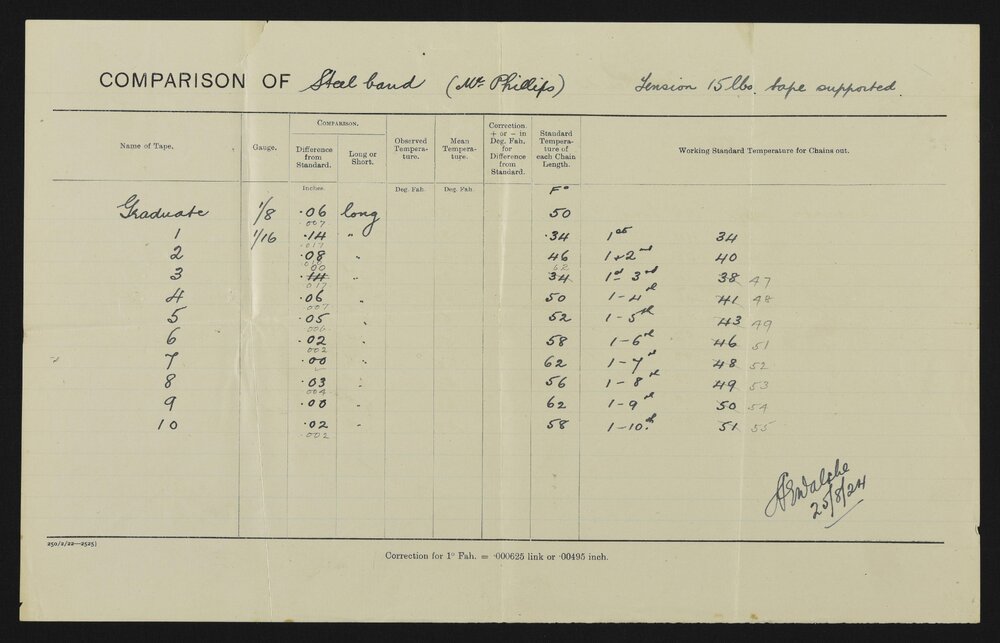 COMPARISON OF Steel band (Mr Phillips) Tension 15 lbs. tape supported.
Name of Tape.
Gauge.
COMPARISON.
Difference from Standard.
Long or Short.
Observed Tempera-ture.
Mean Tempera-ture.
Correction + or - in Deg. Fah. for Difference from Standard.
Standard Tempera-ture of each Chain Length.
Working Standard Temperature for Chains out.
Inches. Deg. Fah. Deg. Fah. F°
Graduate 1/8 .06 long 50
007
1 1/16 .14 " .34 1st 34
.017
2 .08 " 46 1+2nd 40
00 62
3 .14 " 34 1st 3rd 38 47
017
4 .06 " 50 1-4th 41 48
007
5 .05 " 52 1-5th 43 49
006
6 .02 " 58 1-6th 46 51
002
7 .00 " 62 1-7th 48 52
8 .03 " 56 1-8th 49 53
004
9 .00 " 62 1-9th 50 54
10 .02 " 58 1-10th 51 55
.002
25/8/24
250/2/22—2525]
Correction for 1° Fah. = ·000625 link or ·00495 inch.